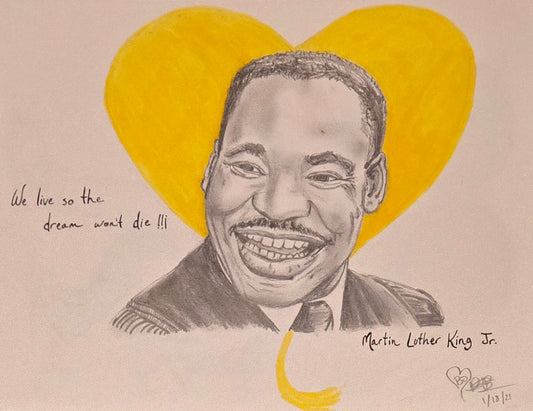 We live so the
dream won't die !!!
Martin Luther King Jr.
1/13/21